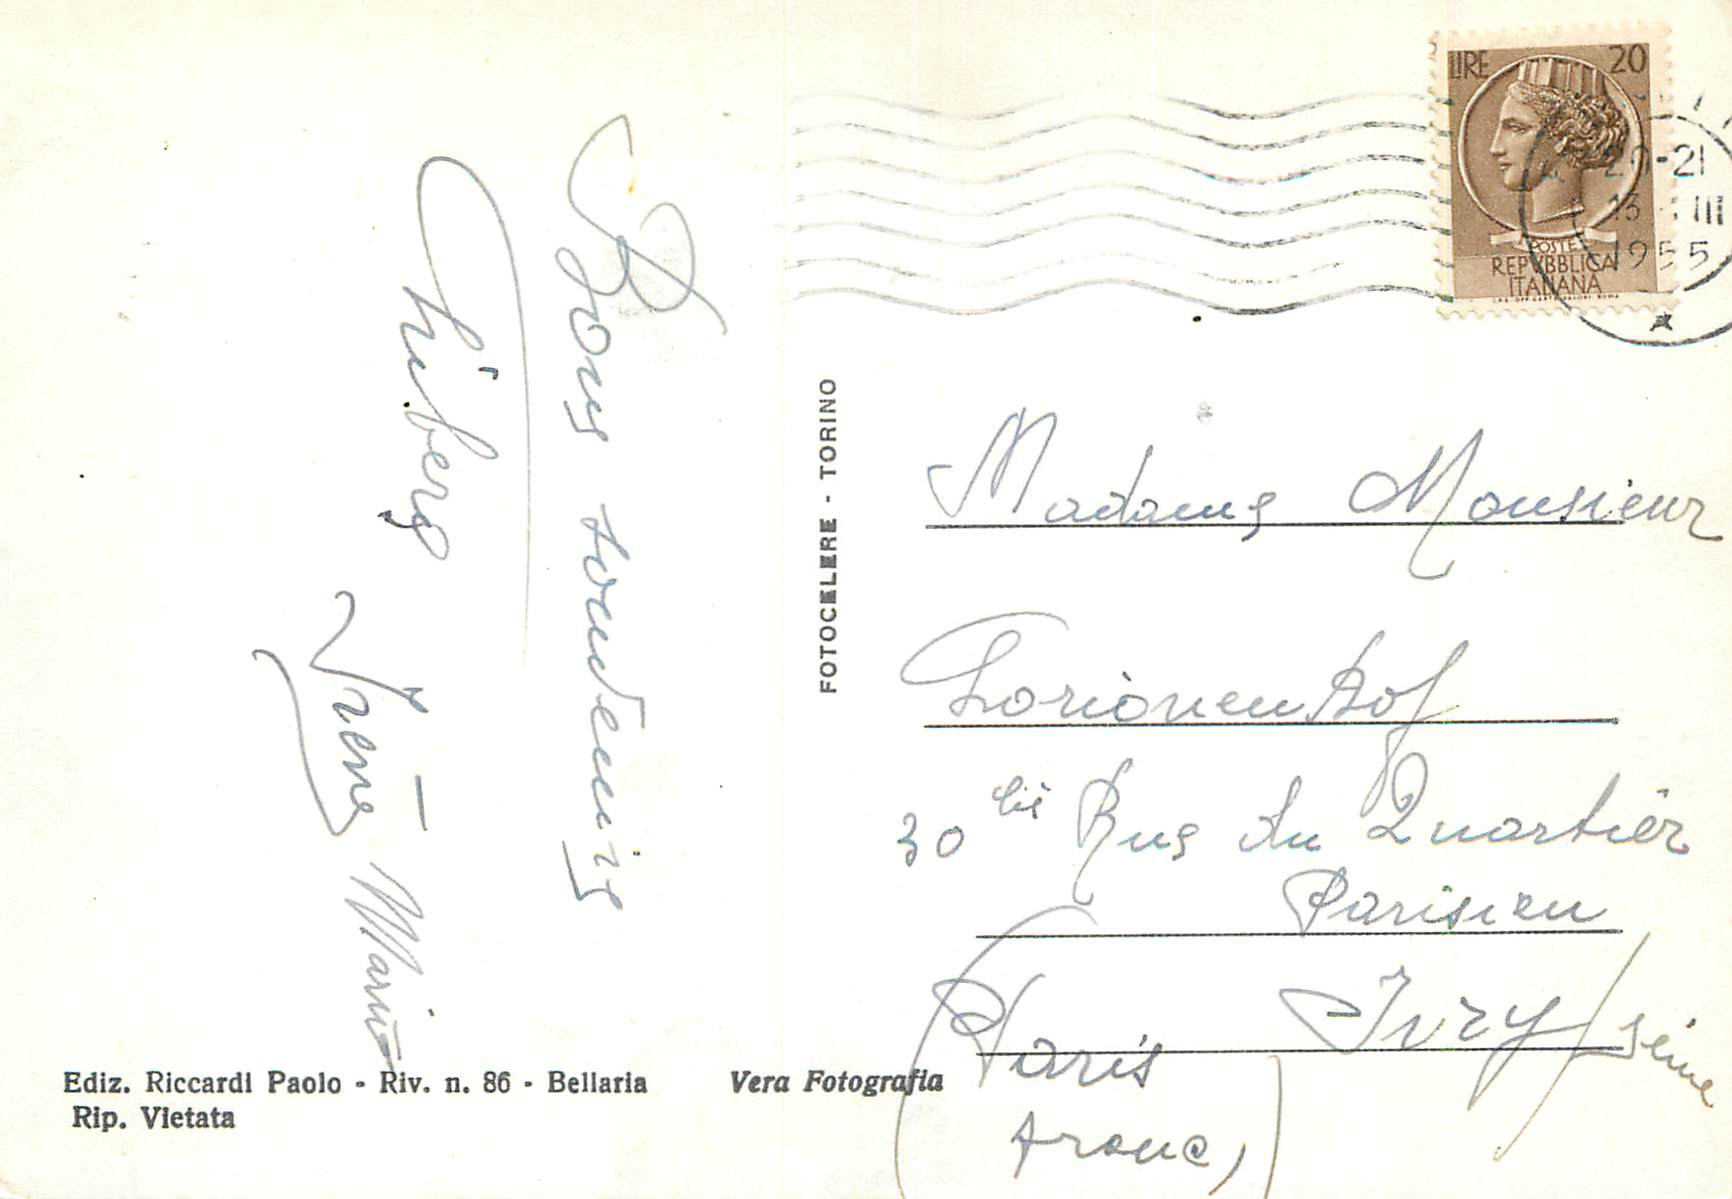 Bons souvenirs
Irène Mario
FOTOCELERE - TORINO
Ediz. Riccardi Paolo - Riv. n. 86 - Bellaria
Rip. Vietata
Vera Fotografia
LIRE 20
POSTE
REPVBBLICA
ITALIANA
20-21
13 III
1955
Madame Monsieur
30 bis Rue du Quartier
Parisien
Ivry / Seine
(Paris
France)